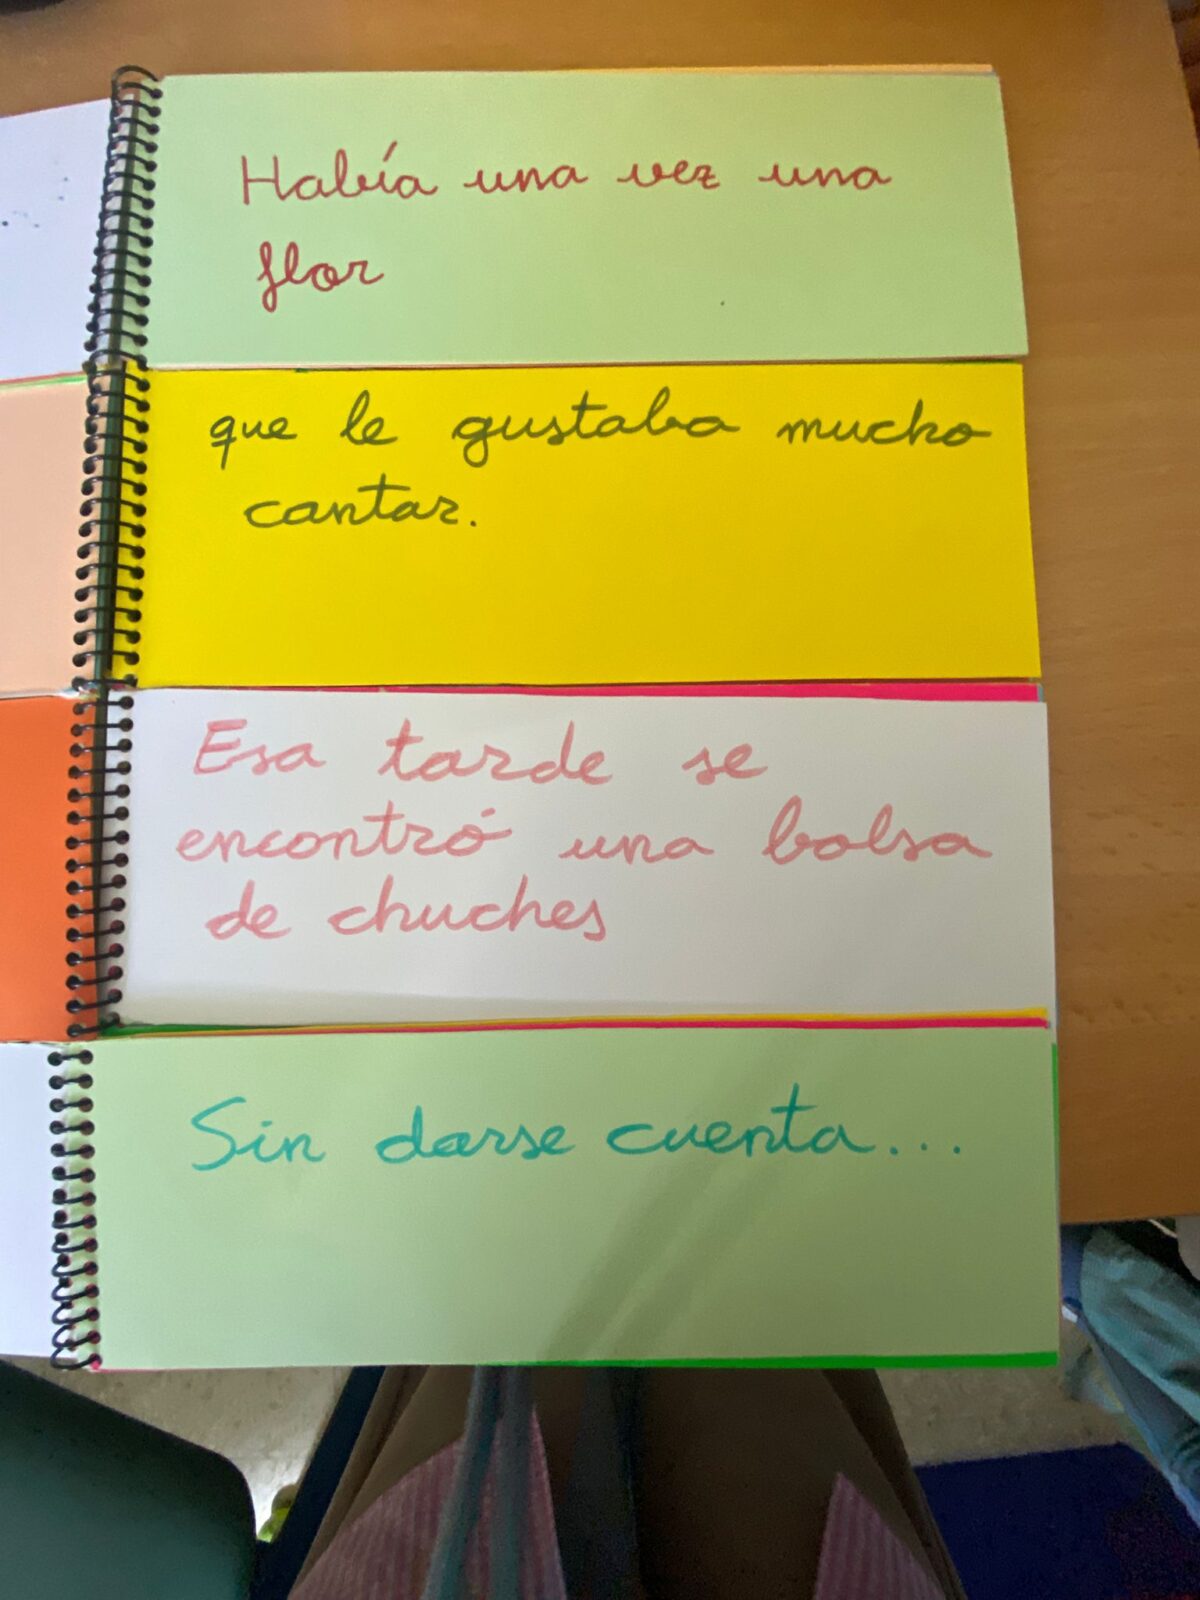 Había una vez una
flor
que le gustaba mucho
cantar.
Esa tarde se
encontró una bolsa
de chuches
Sin darse cuenta...